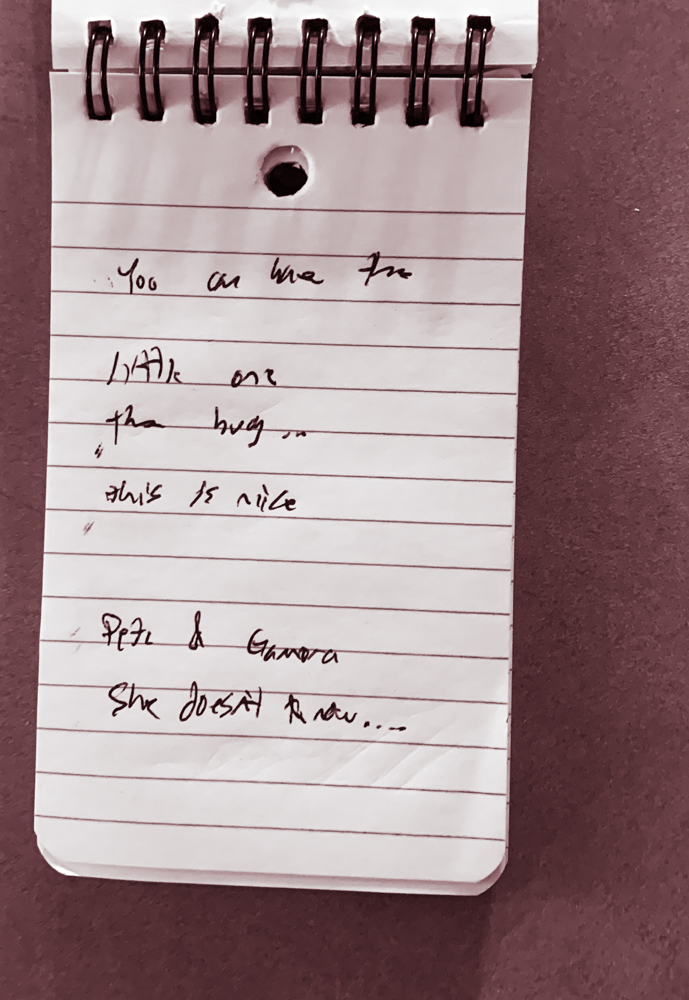 You can have the
little one
the bug...
this is nice
Pete & Gamora
She doesn't know....